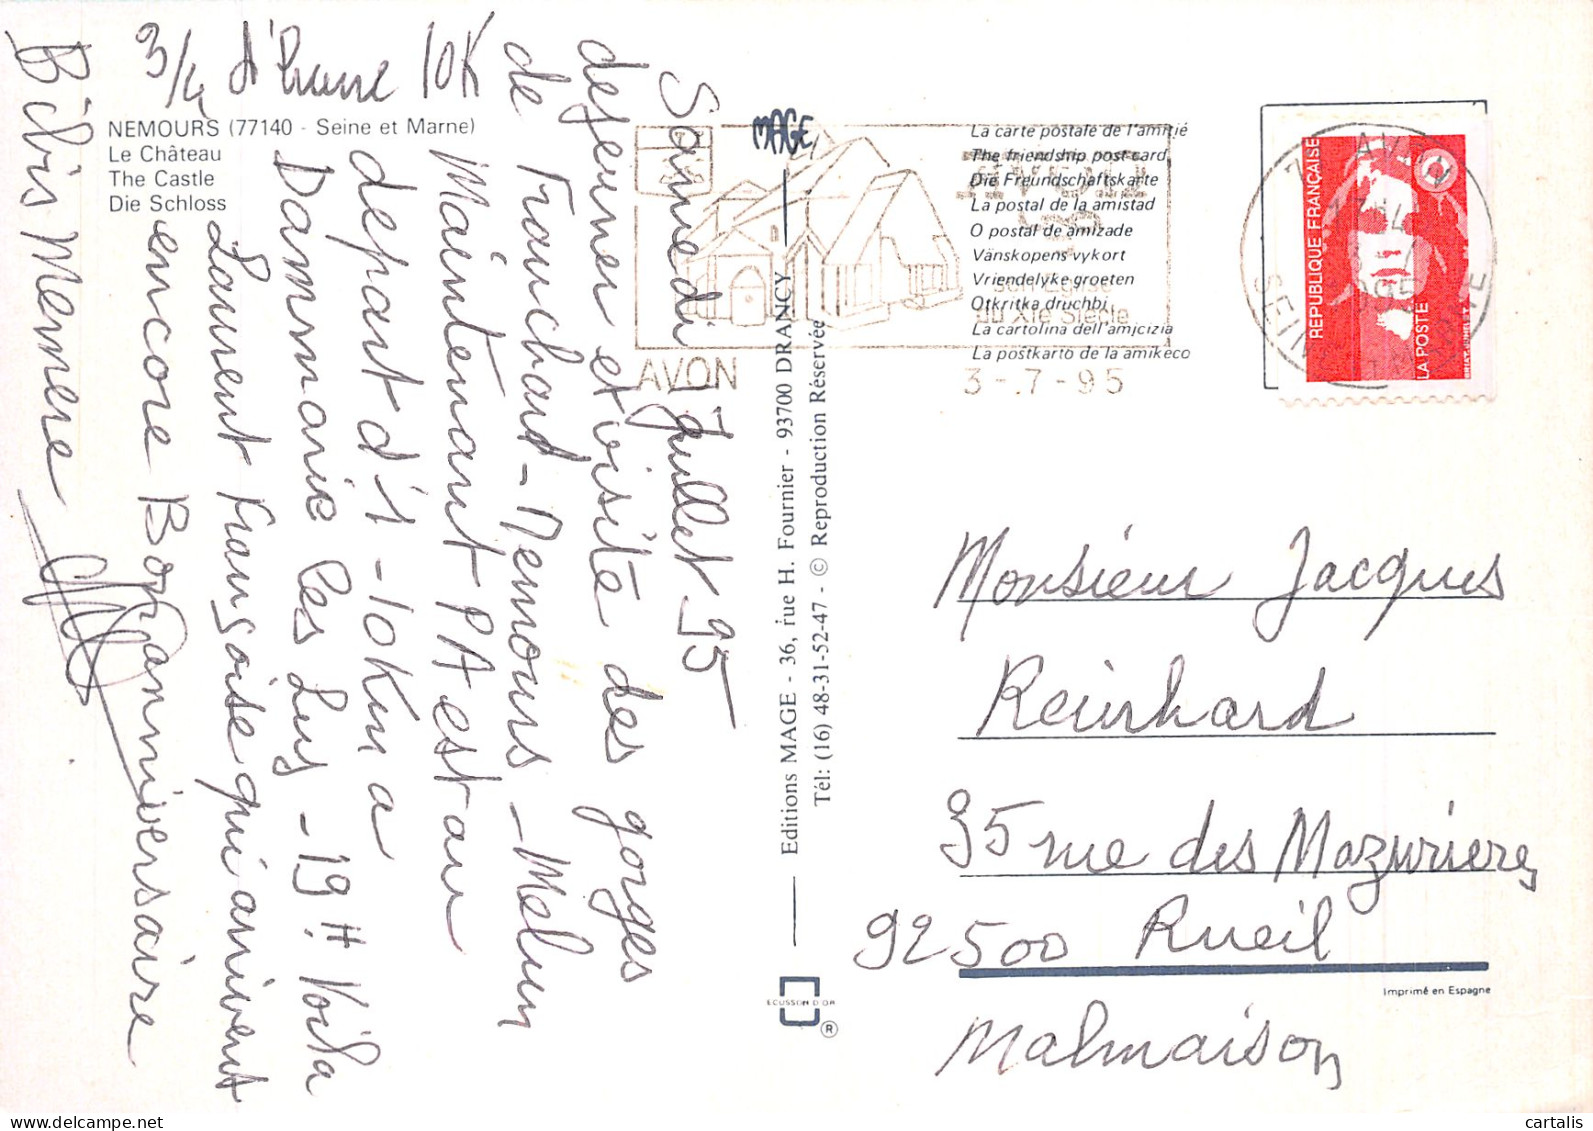 NEMOURS (77140 - Seine et Marne)
Le Château
The Castle
Die Schloss
Samedi 1 Juillet 95
dejeuner et visite des gorges
de Franchard - Nemours - Melun
Maintenant PA est au
depart d's - 10 Km a
Dammarie les Lys - 19H Voila
Laurent Françoise qui arrivent
encore Bon anniversaire
Bibis Memere
3/4 d'heure 10K
MAGE
Editions MAGE - 36, rue H. Fournier - 93700 DRANCY
Tél: (16) 48-31-52-47 - © Reproduction Réservée
ECUSSON D'OR
®
La carte postale de l'amitié
The friendship post-card
Die Freundschaftskarte
La postal de la amistad
O postal de amizade
Vänskopens vykort
Vriendelyke groeten
Otkritka druchbi
La cartolina dell'amicizia
La postkarto de la amikeco
AVON
son Eglise
du XIe Siècle
3-.7-95
77 AVON
SEINE ET MARNE
REPUBLIQUE FRANÇAISE
LA POSTE
Monsieur Jacques
Reinhard
35 rue des Mazurieres
92500 Rueil
Malmaison
Imprimé en Espagne
cartalis